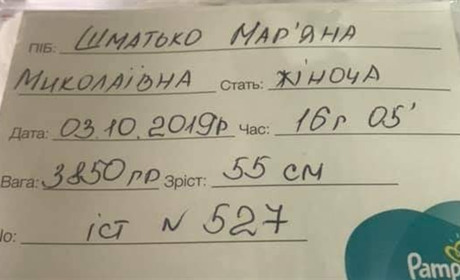 ПІБ: Шматько Мар'яна
Миколаївна Стать: жіноча
Дата: 03.10.2019р Час: 16г 05'
Вага: 3850гр Зріст: 55 см
No: іст N 527
Pamp